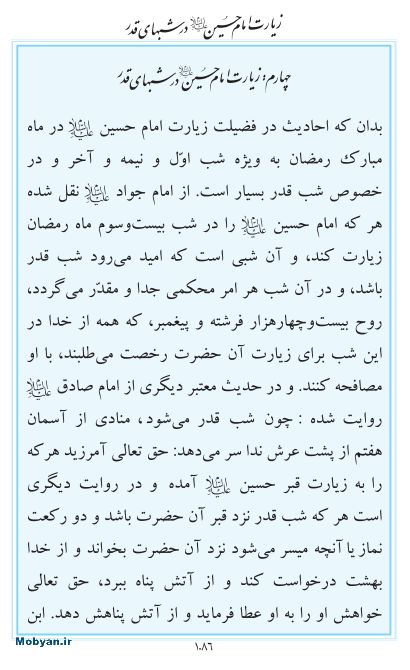 زیارت امام حسین علیه‌السلام در شبهای قدر
چهارم: زیارت امام حسین علیه‌السلام در شبهای قدر
بدان که احادیث در فضیلت زیارت امام حسین علیه‌السلام در ماه
مبارك رمضان به ویژه شب اوّل و نیمه و آخر و در
خصوص شب قدر بسیار است. از امام جواد علیه‌السلام نقل شده
هر که امام حسین علیه‌السلام را در شب بیست‌وسوم ماه رمضان
زیارت کند، و آن شبی است که امید می‌رود شب قدر
باشد، و در آن شب هر امر محکمی جدا و مقدّر می‌گردد،
روح بیست‌وچهارهزار فرشته و پیغمبر، که همه از خدا در
این شب برای زیارت آن حضرت رخصت می‌طلبند، با او
مصافحه کنند. و در حدیث معتبر دیگری از امام صادق علیه‌السلام
روایت شده : چون شب قدر می‌شود، منادی از آسمان
هفتم از پشت عرش ندا سر می‌دهد: حق تعالی آمرزید هرکه
را به زیارت قبر حسین علیه‌السلام آمده و در روایت دیگری
است هر که شب قدر نزد قبر آن حضرت باشد و دو رکعت
نماز یا آنچه میسر می‌شود نزد آن حضرت بخواند و از خدا
بهشت درخواست کند و از آتش پناه ببرد، حق تعالی
خواهش او را به او عطا فرماید و از آتش پناهش دهد. ابن
Mobyan.ir
۱۰۸۶